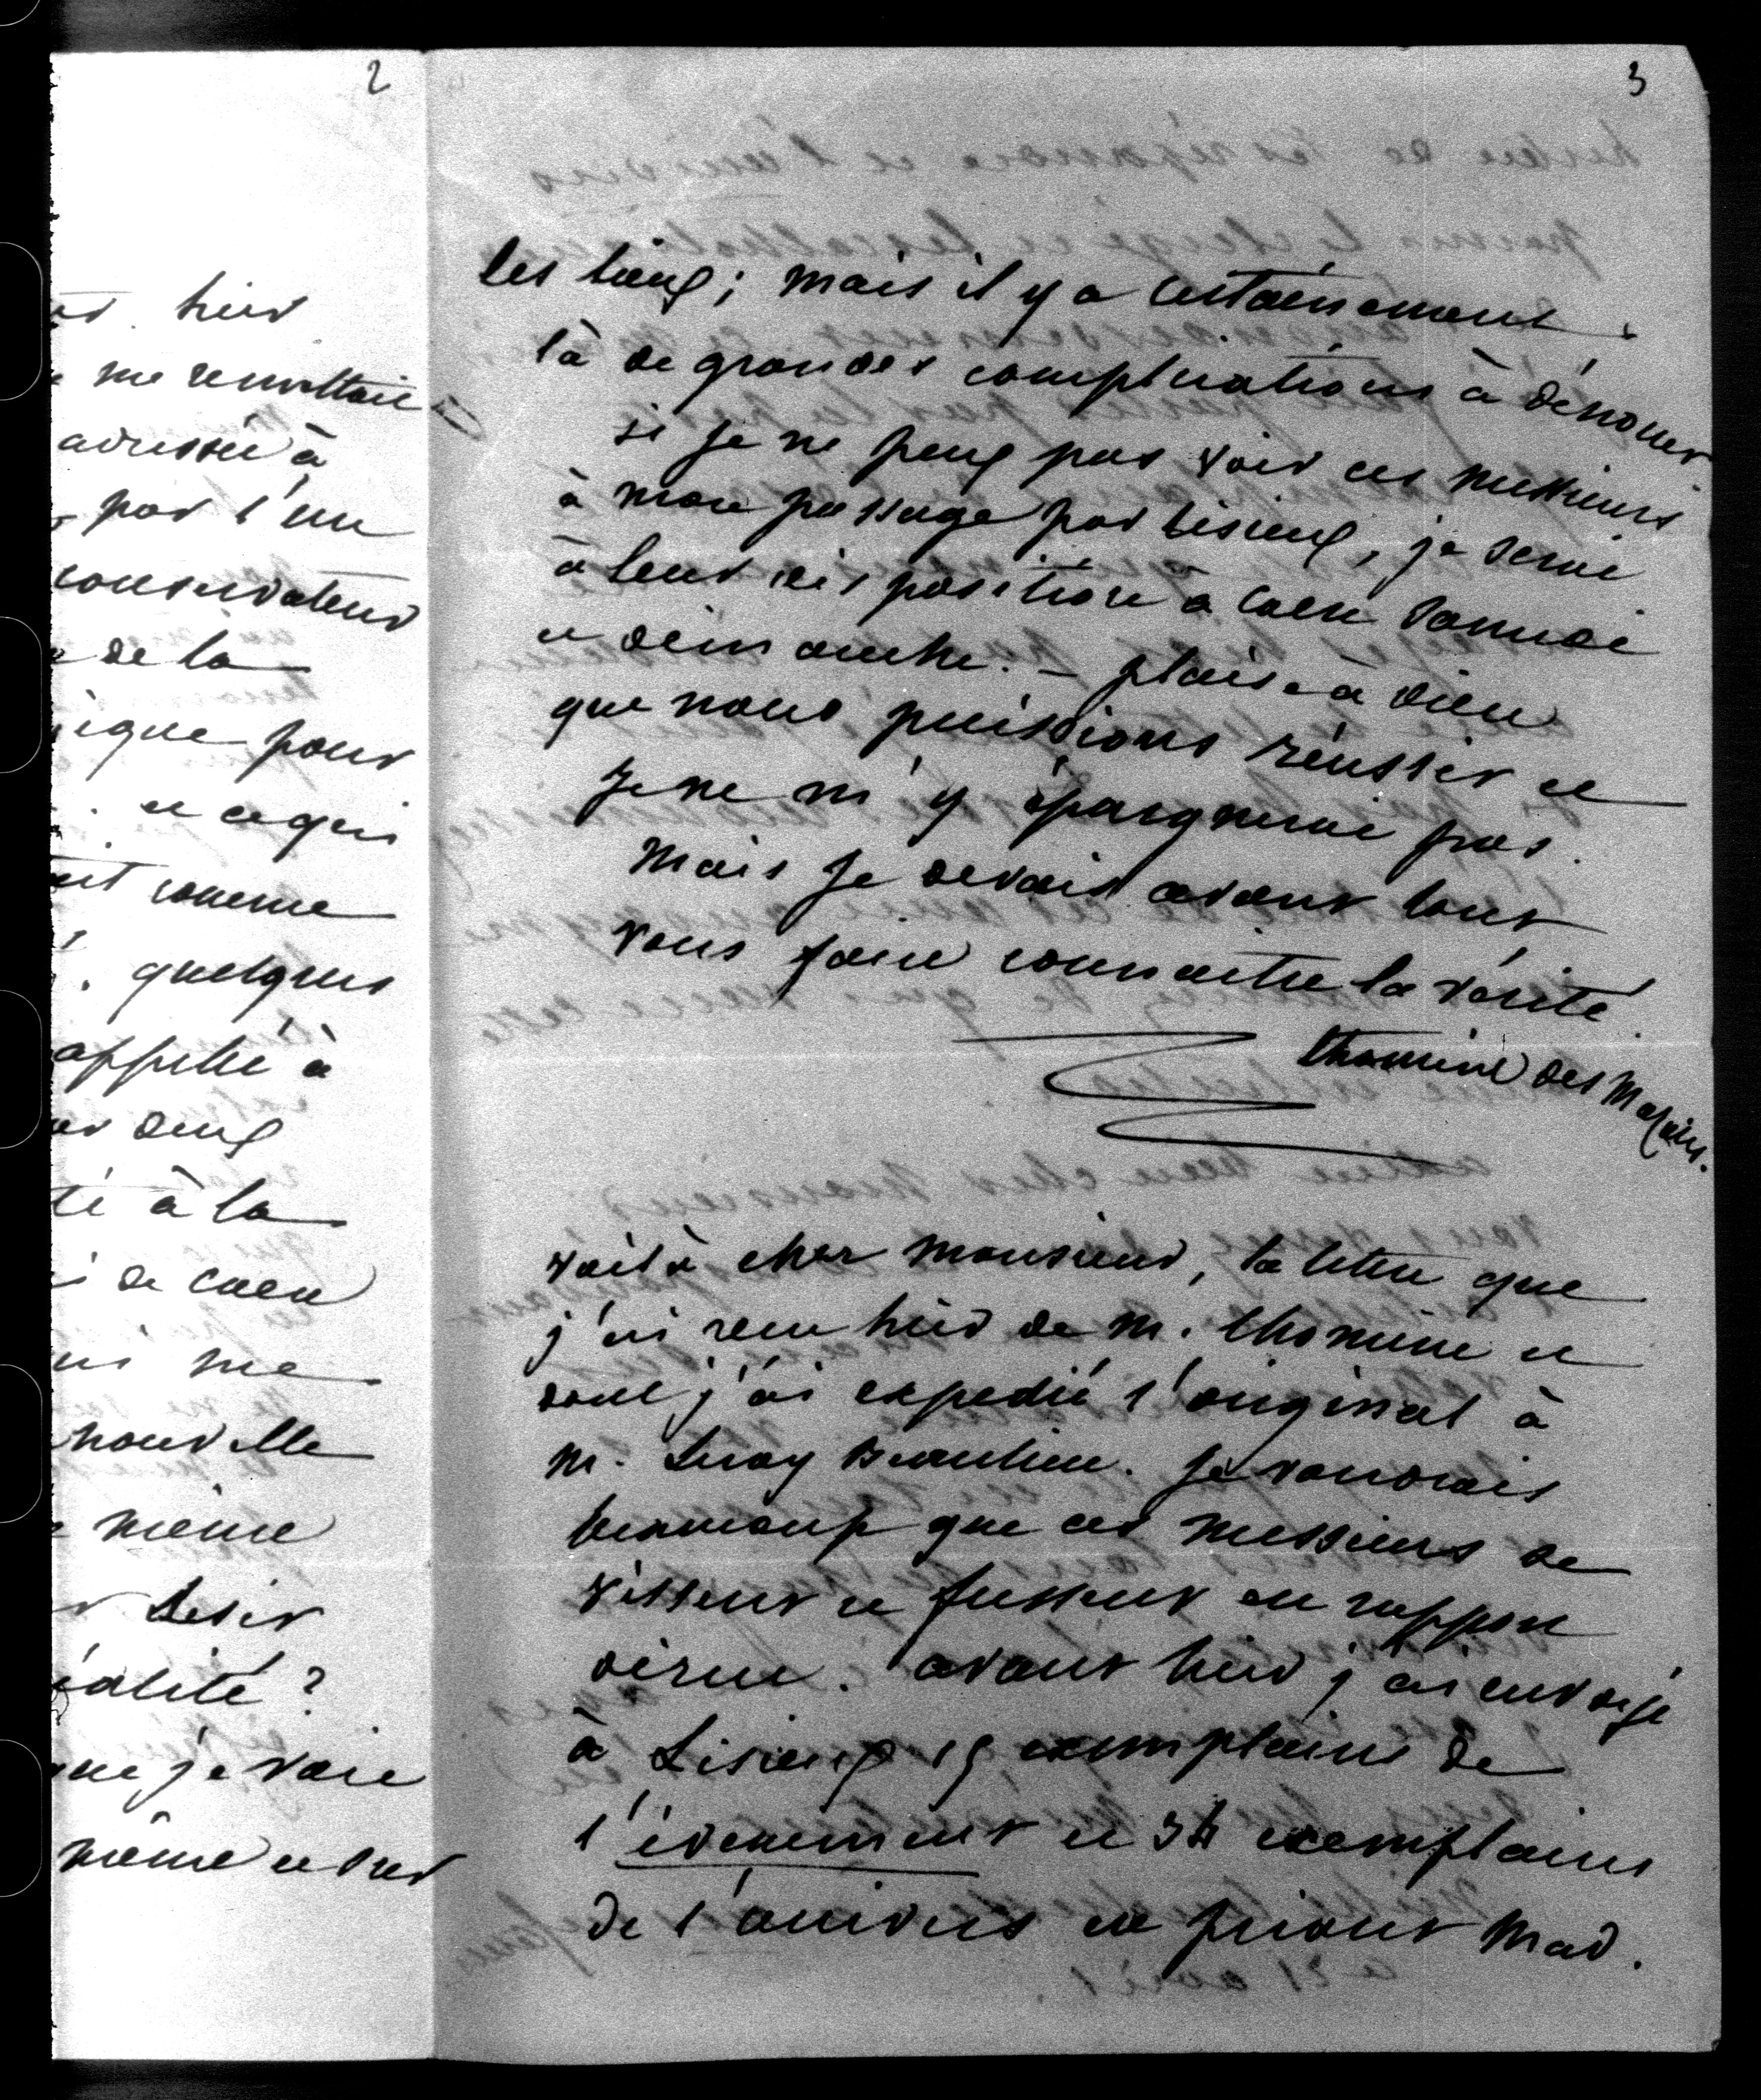 2
hier
me remettait
adressée à
par l'un
conservateur
de la
ique pour
et ce qui
comme
quelques
appelle à
deux
té à la
de Caen
me
nouvelle
même
désir
alité ?
que je vois
même et sur
3
les lieux ; mais il y a certainement
là de grandes complications à dénouer
si je ne peux pas voir ces messieurs
à mon passage par Lisieux, je serai
à leur disposition à Caen Samedi
et dimanche. – plaise à dieu
que nous puissions réussir et
je ne m'y épargnerai pas.
Mais je devais avant tout
vous faire connaitre la vérité.
Thomine des Mazures.
voilà cher monsieur, la lettre que
j'ai reçu hier de M. Thomine et
dont j'ai expedié l'original à
M. Leroy Beaulieu. Je voudrais
beaucoup que ces messieurs se
vissent et fussent en rapport
avant hier j'ai envoyé
à Lisieux 15 exemplaires de
l'évènement et exemplaires
de l'univers en priant Mad.